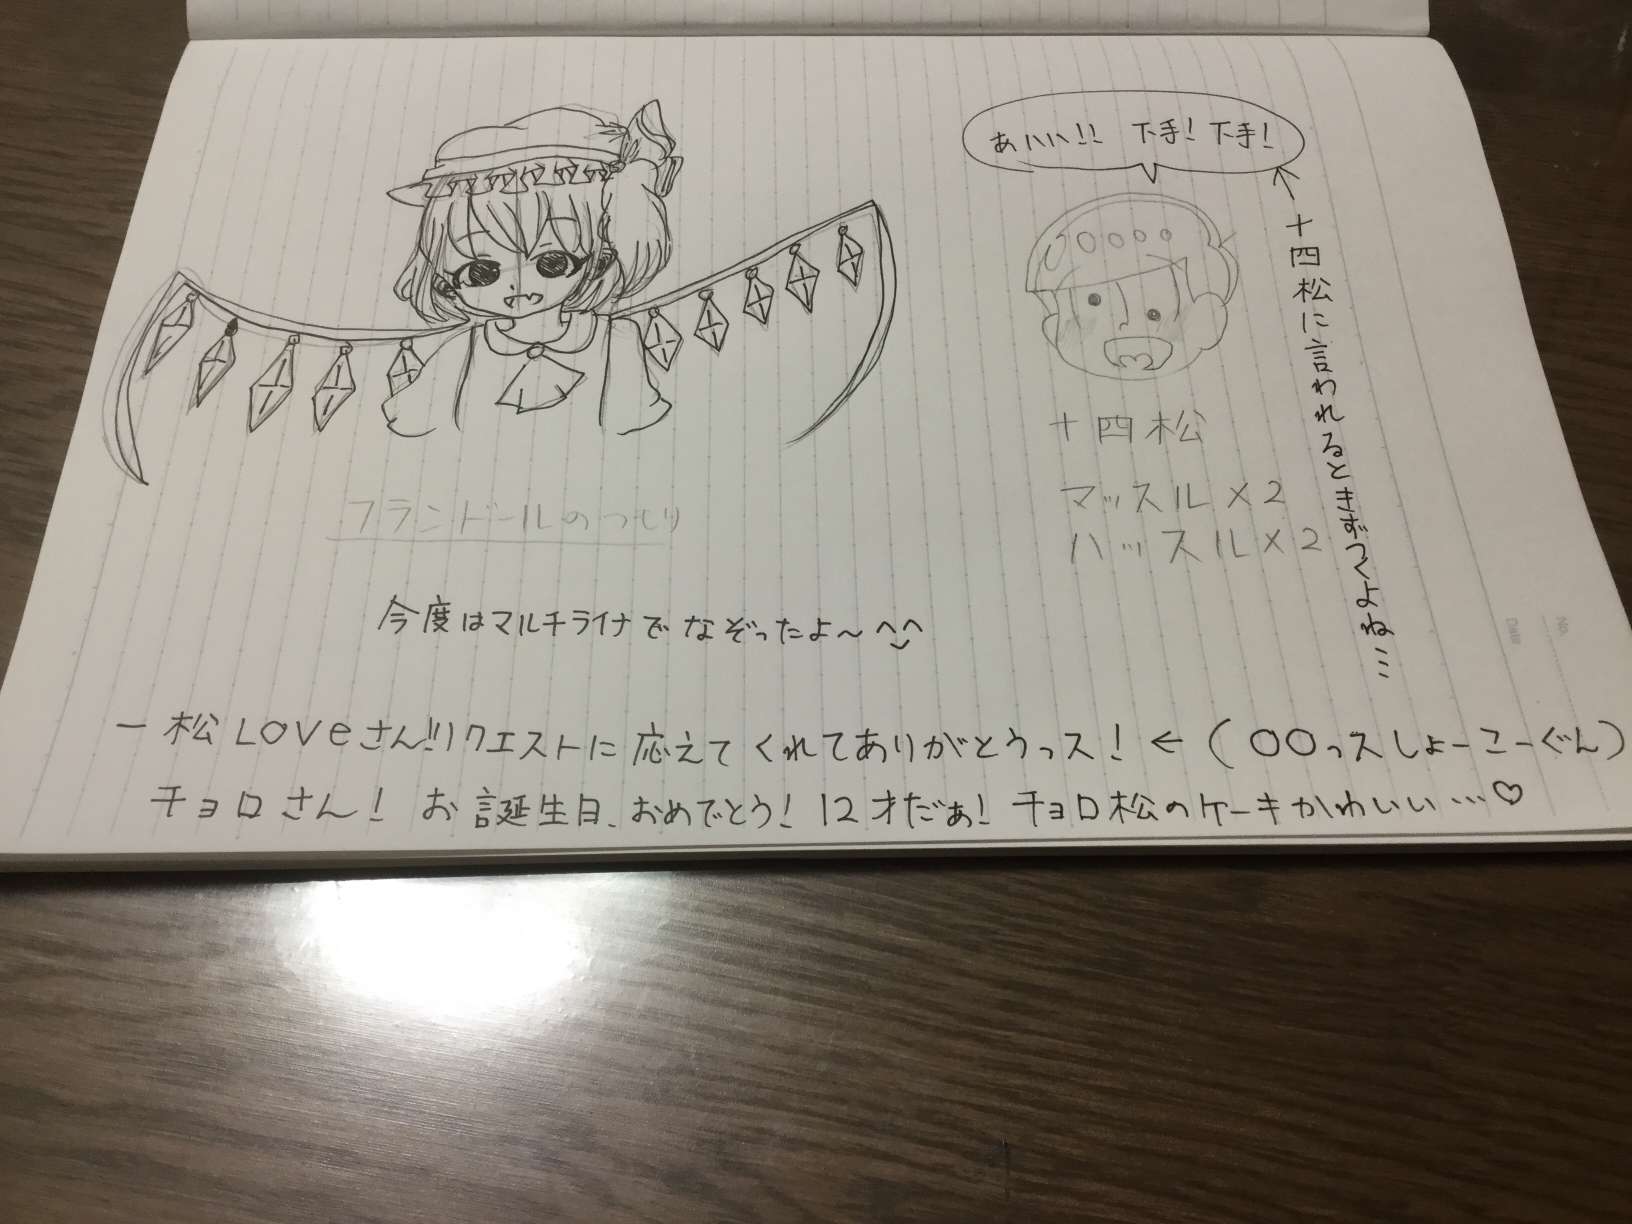 あハハ!! 下手! 下手!
十四松に言われるときずつくよね…
十四松
マッスル×2
ハッスル×2
フランドールのつもり
今度はマルチライナでなぞったよ～^^
一松Loveさん!!リクエストに応えてくれてありがとうっス!←(〇〇っスしょーこーぐん)
チョロさん! お誕生日、おめでとう! 12才だぁ! チョロ松のケーキかわいい…♡
No.
Date